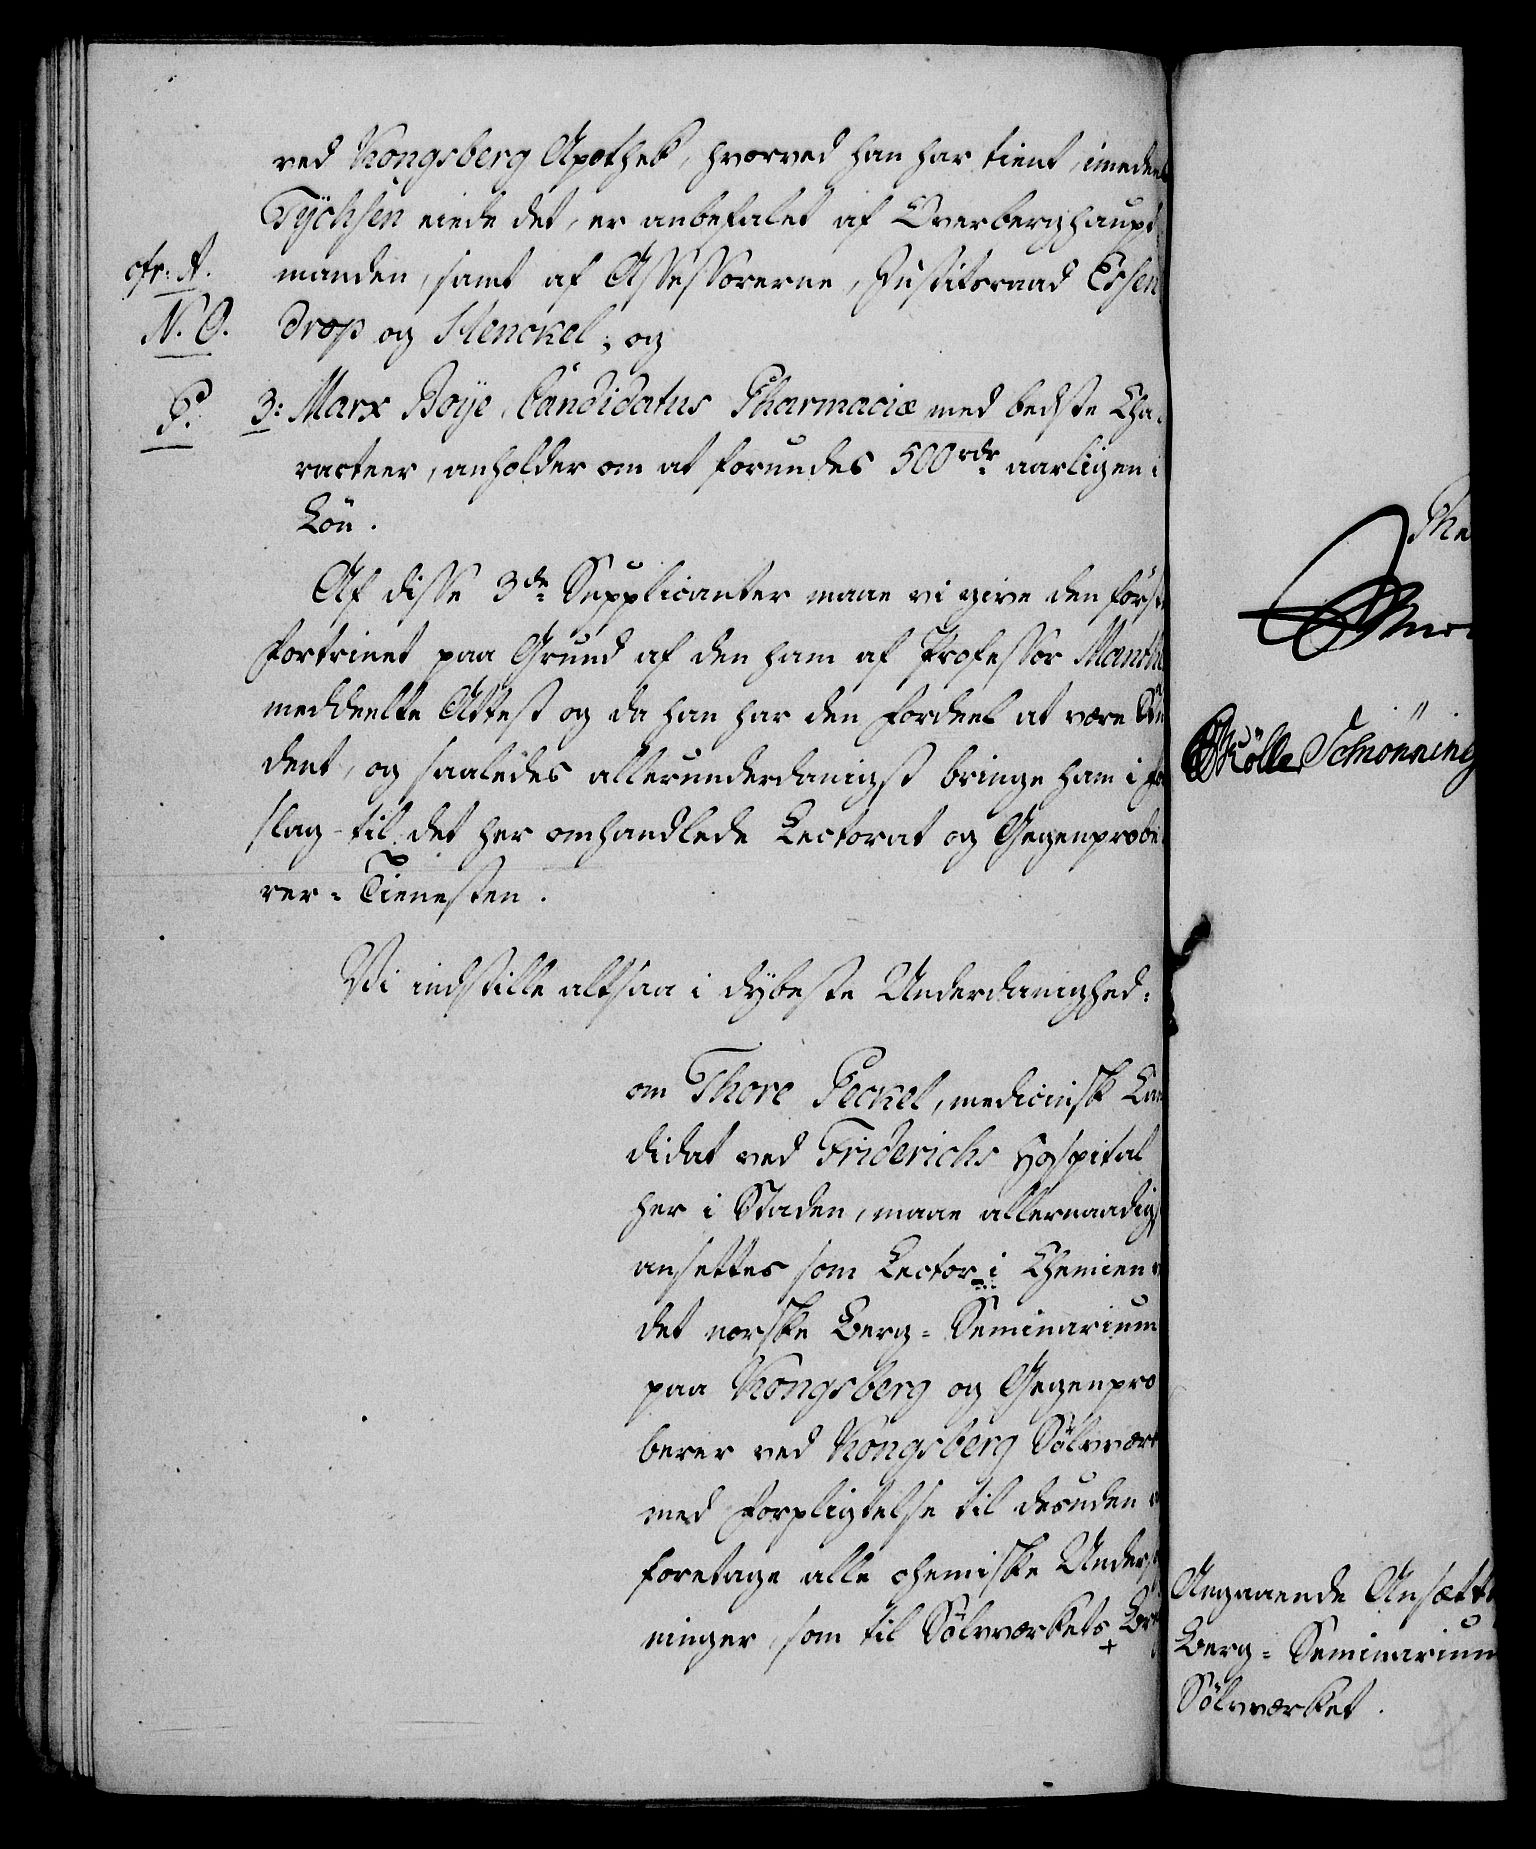 ved Kongsberg Apothek, hvorved han har tient, imedens
Tÿchsen eiede det, er anbefalet af Overberghaupt
cfr: A. manden, samt af Assessorerne, Justitsraad Essen
N. O. drop og Henckel; og
P. 3: Marx Boÿe, Candidatus Pharmaciæ med bedste Cha-
racteer, anholder om at forundes 500 rdr aarligen i
Løn.
Af disse 3de Supplicanter maae vi give den første
Fortrinet paa Grund af den ham af Professor Manthe
meddeelte Attest og da han har den Fordeel at være Stu
dent, og saaledes allerunderdanigst bringe ham i For
slag til det her omhandlede Lectorat og Gegenprobe
rer-Tienesten.
Vi indstille altsaa i dÿbeste Underdanighed:
om Thore Peckel, medicinsk Can
didat ved Friderichs Hospital
her i Staden, maae allernaadigst
ansettes som Lector i Chemien
det norske Berg-Seminarium
paa Kongsberg og Gegenpro
berer ved Kongsberg Sølvværk
med Forpligtelse til desuden
foretage alle chemiske Undersøg
ninger, som til Sølvværkets
The
Kölle Schiönning
Angaaende Ansætt
Berg-Seminarium
Sølvværket.